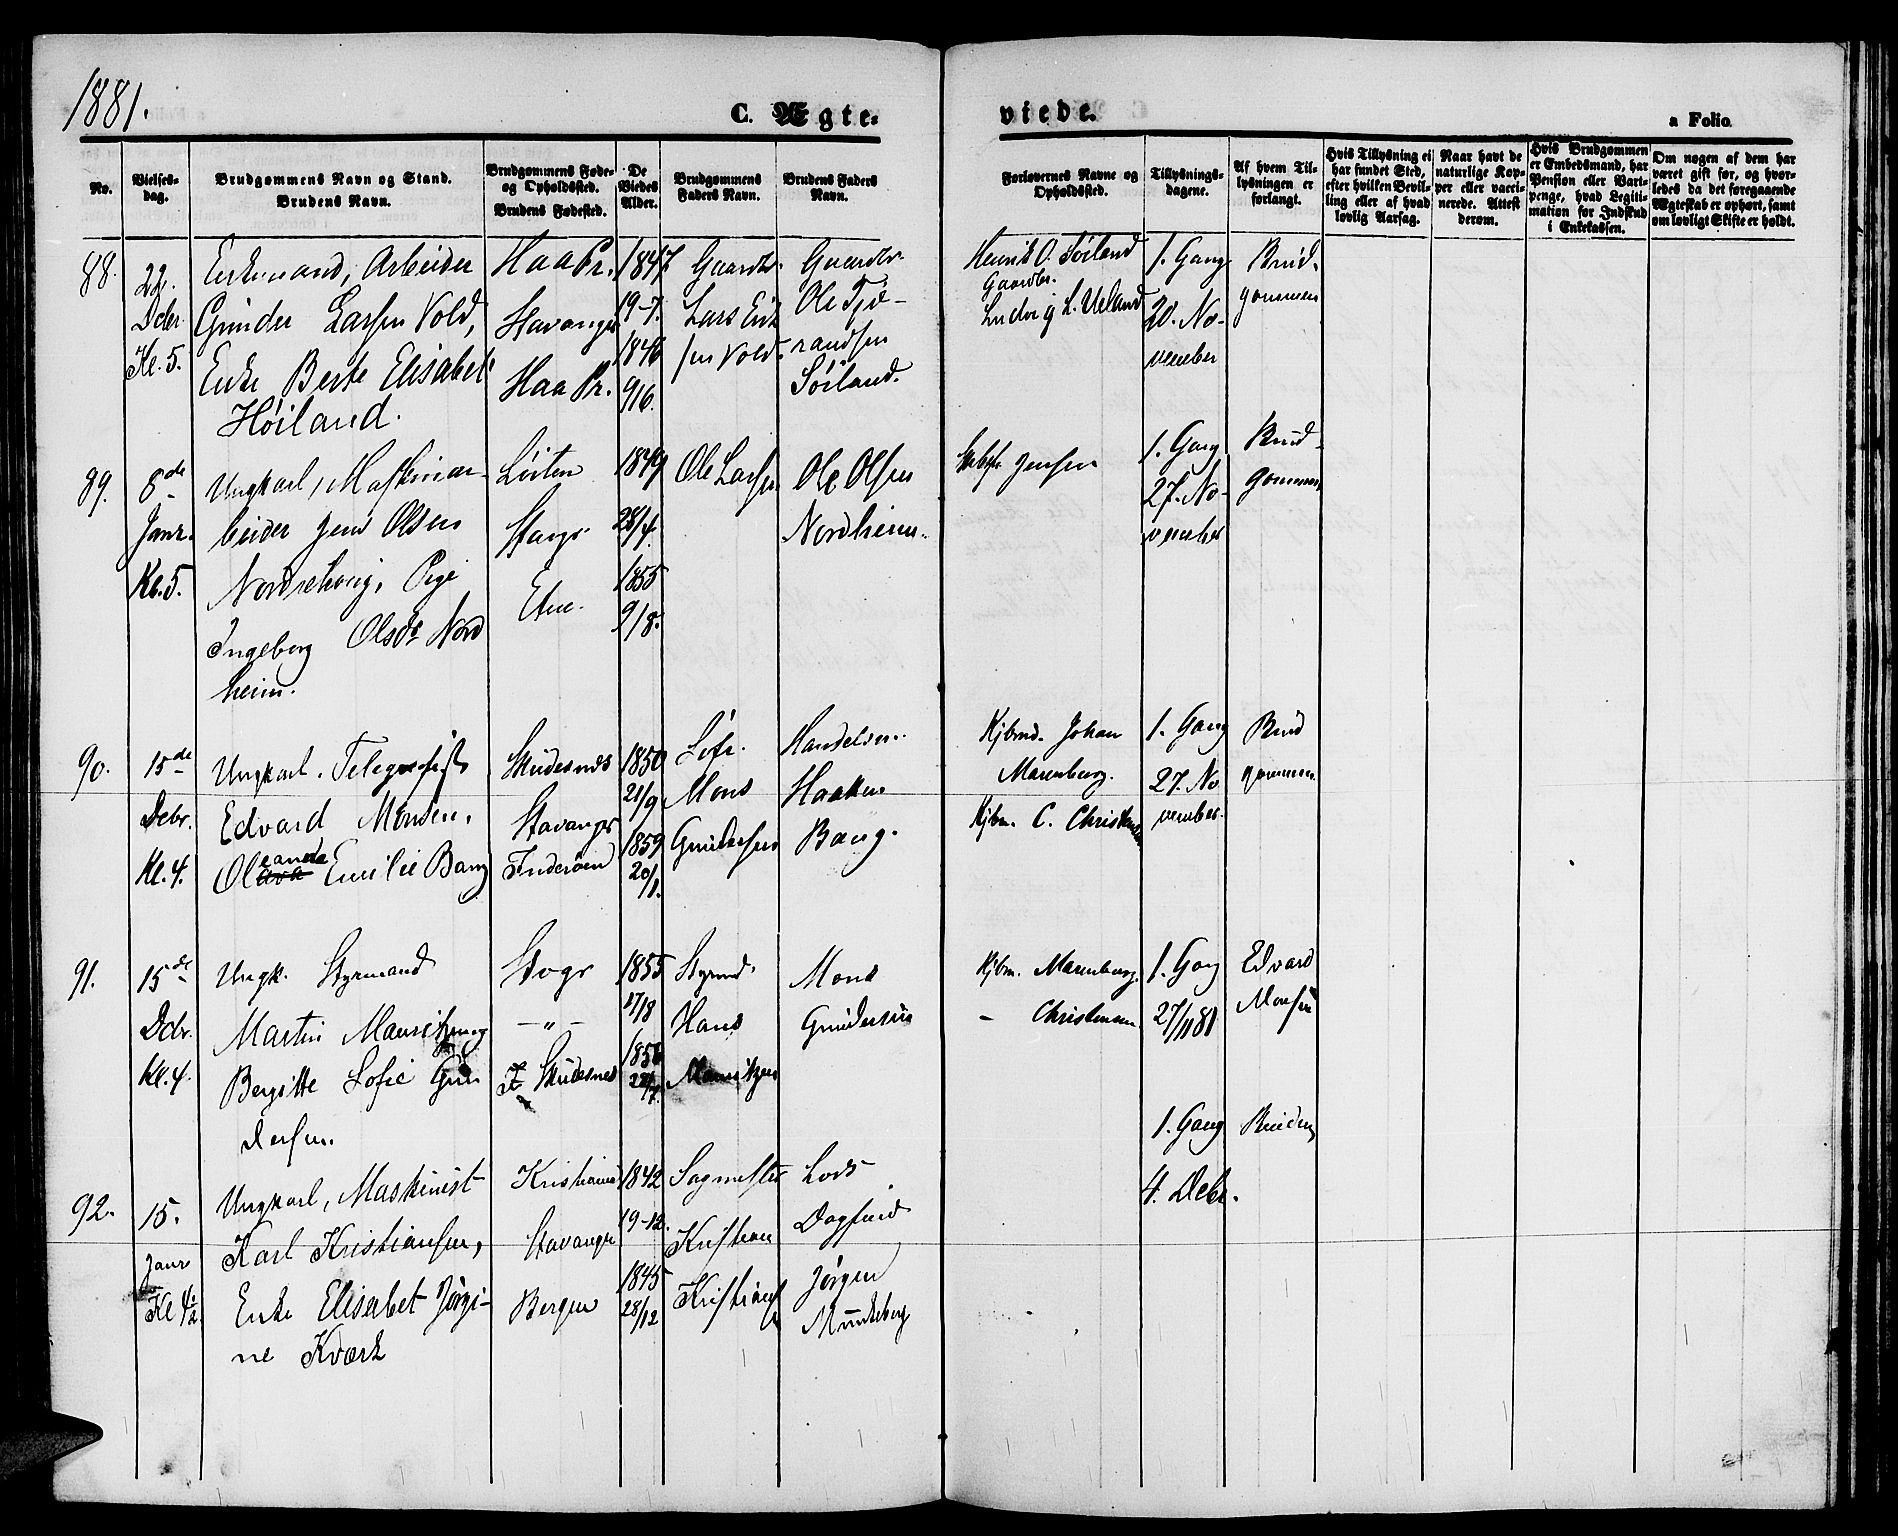 1881.
C. Ægte-
viede.
a Folio
No.
Vielses-
dag.
Brudgommens Navn og Stand.
Brudens Navn.
Brudgommens Føde-
og Opholdssted.
Brudens Fødested.
De
Viedes
Alder.
Brudgommens
Faders Navn.
Brudens Faders
Navn.
Forlovernes Navne og
Opholdssted.
Tillysnings-
dagene.
Af hvem Til-
lysningen er
forlangt.
Hvis Tillysning ei
har fundet Sted,
efter hvilken Bevil-
ling eller af hvad
lovlig Aarsag.
Naar havt de
naturlige Kop-
per eller vacci-
nerede. Attest
derom.
Hvis Brudgommen
er Embedsmand, har
Pension eller Vart-
penge, hvad Legiti-
mation for Indskud
i Enkekassen.
Om nogen af dem har
været gift før, og hvor-
ledes da det foregaaende
Ægteskab er ophørt, samt
om lovligt Skifte er holdt.
88.
22.
Dcbr.
Kl. 5.
Enkemand, Arbeider
Gunder Larsen Vold,
Enke Berte Elisabet
Høiland.
Haa Pr.
Stavanger
Haa Pr.
1847
19-7.
1846
9/6.
Gaardbr.
Lars Erik
sen Vold.
Gaardbr.
Ole Tjø-
randsen
Söiland.
Henrik O. Söiland
Gaardbr.
Ludvig L. Ueland
1. Gang
20. No-
vember
Brud-
gommen
89.
8de
Janr.
Kl. 5.
Ungkarl, Maskinar-
beider Jens Olsen
Pige
Ingeborg Olsdr Nord
heim.
Löiten
Stangr
Etne.
1849
28/4.
1855
9/8.
Ole Larsen
Ole Olsen
Nordheim.
Jensen
1. Gang
27. No-
vember
Brud-
gommen
90.
15de
Debr.
Kl. 4.
Ungkarl. Telegrafist
Edvard Monsen,
Oleanda Emilie Bang
Skudesnes
Stavanger
Inderöen
1850
21/9
1859
20/1.
Mons
Gundersen
Handelsm.
Haaken
Bang.
Kjbmd. Johan
Marenburg.
Kjbm. C. Christensen
1. Gang
27. No
vember.
Brud
gommen
91.
15de
Dcbr.
Kl. 4.
Ungk. Styrmand
Martin Mauritzen og
Bergitte Sofie Gun
dersen.
Stvgr
- " -
Skudesnes
1855
17/8
1856
Styrmd.
Hans
Mauritzen
Mons
Gundersen
Kjbm. Marenburg.
- Christensen
1. Gang
27/11 81
Edvard
Monsen
92.
15.
Janr
Kl 4 1/2.
Ungkarl, Maskinist
Karl Kristiansen,
Enke Elisabet Jörgi-
ne Kværk
Kristiania
Stavanger
Bergen
1842
19-12.
1845
28/12
Sagmester
Kristian
Kristiansen
Lods
Dagfind
Jörgen
Munkeberg
1. Gang
4. Debr.
Bruden